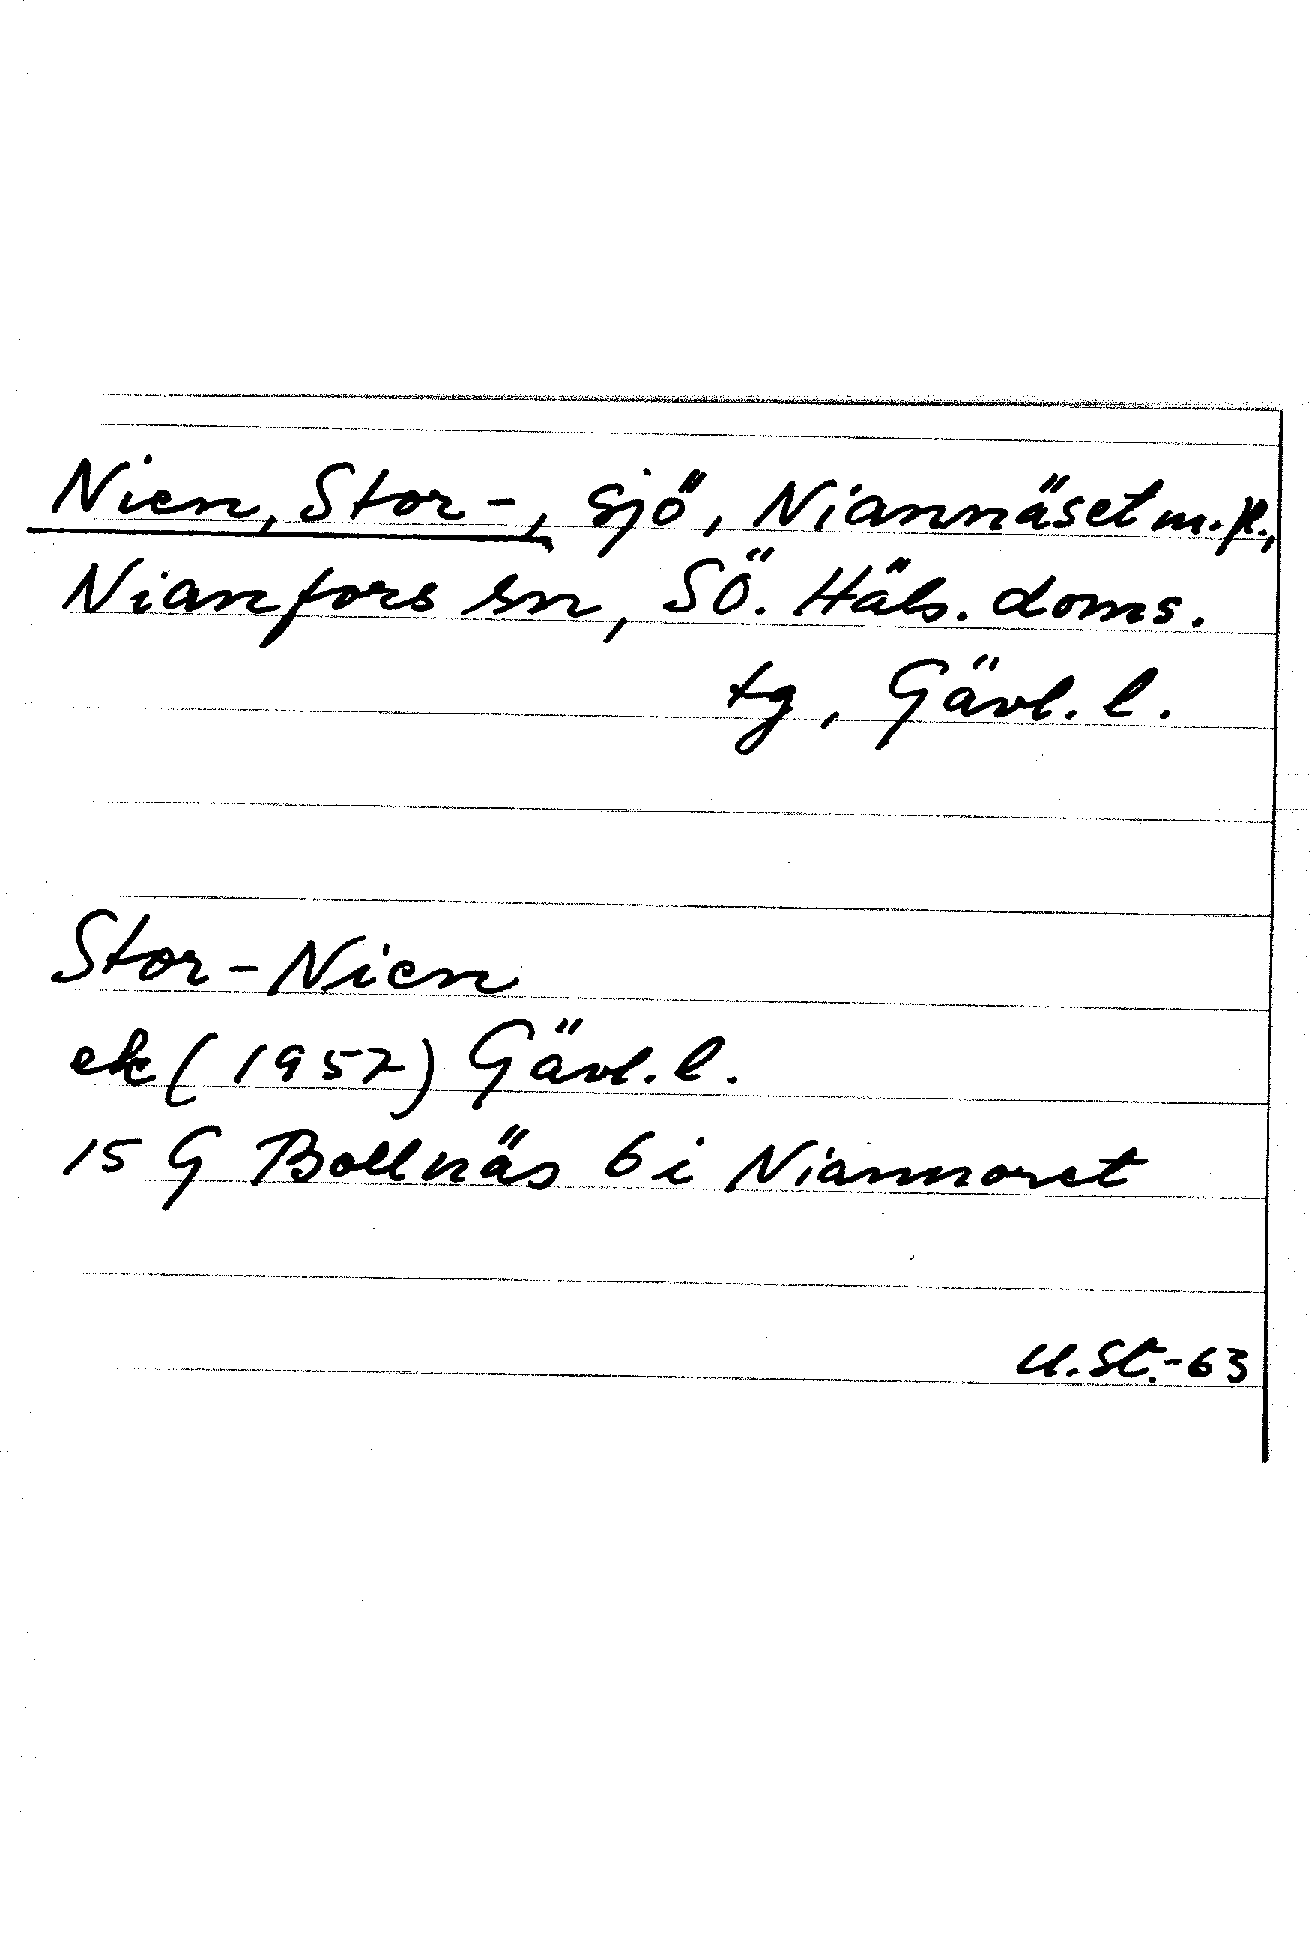 Nien, Stor-, sjö, Niannäset m.fl.,
Nianfors sn, SÖ. Häls. doms.
tg, Gävl. l.
Stor-Nien
ek (1957) Gävl. l.
15 G Bollnäs 6 i Niannoret
U.St.-63